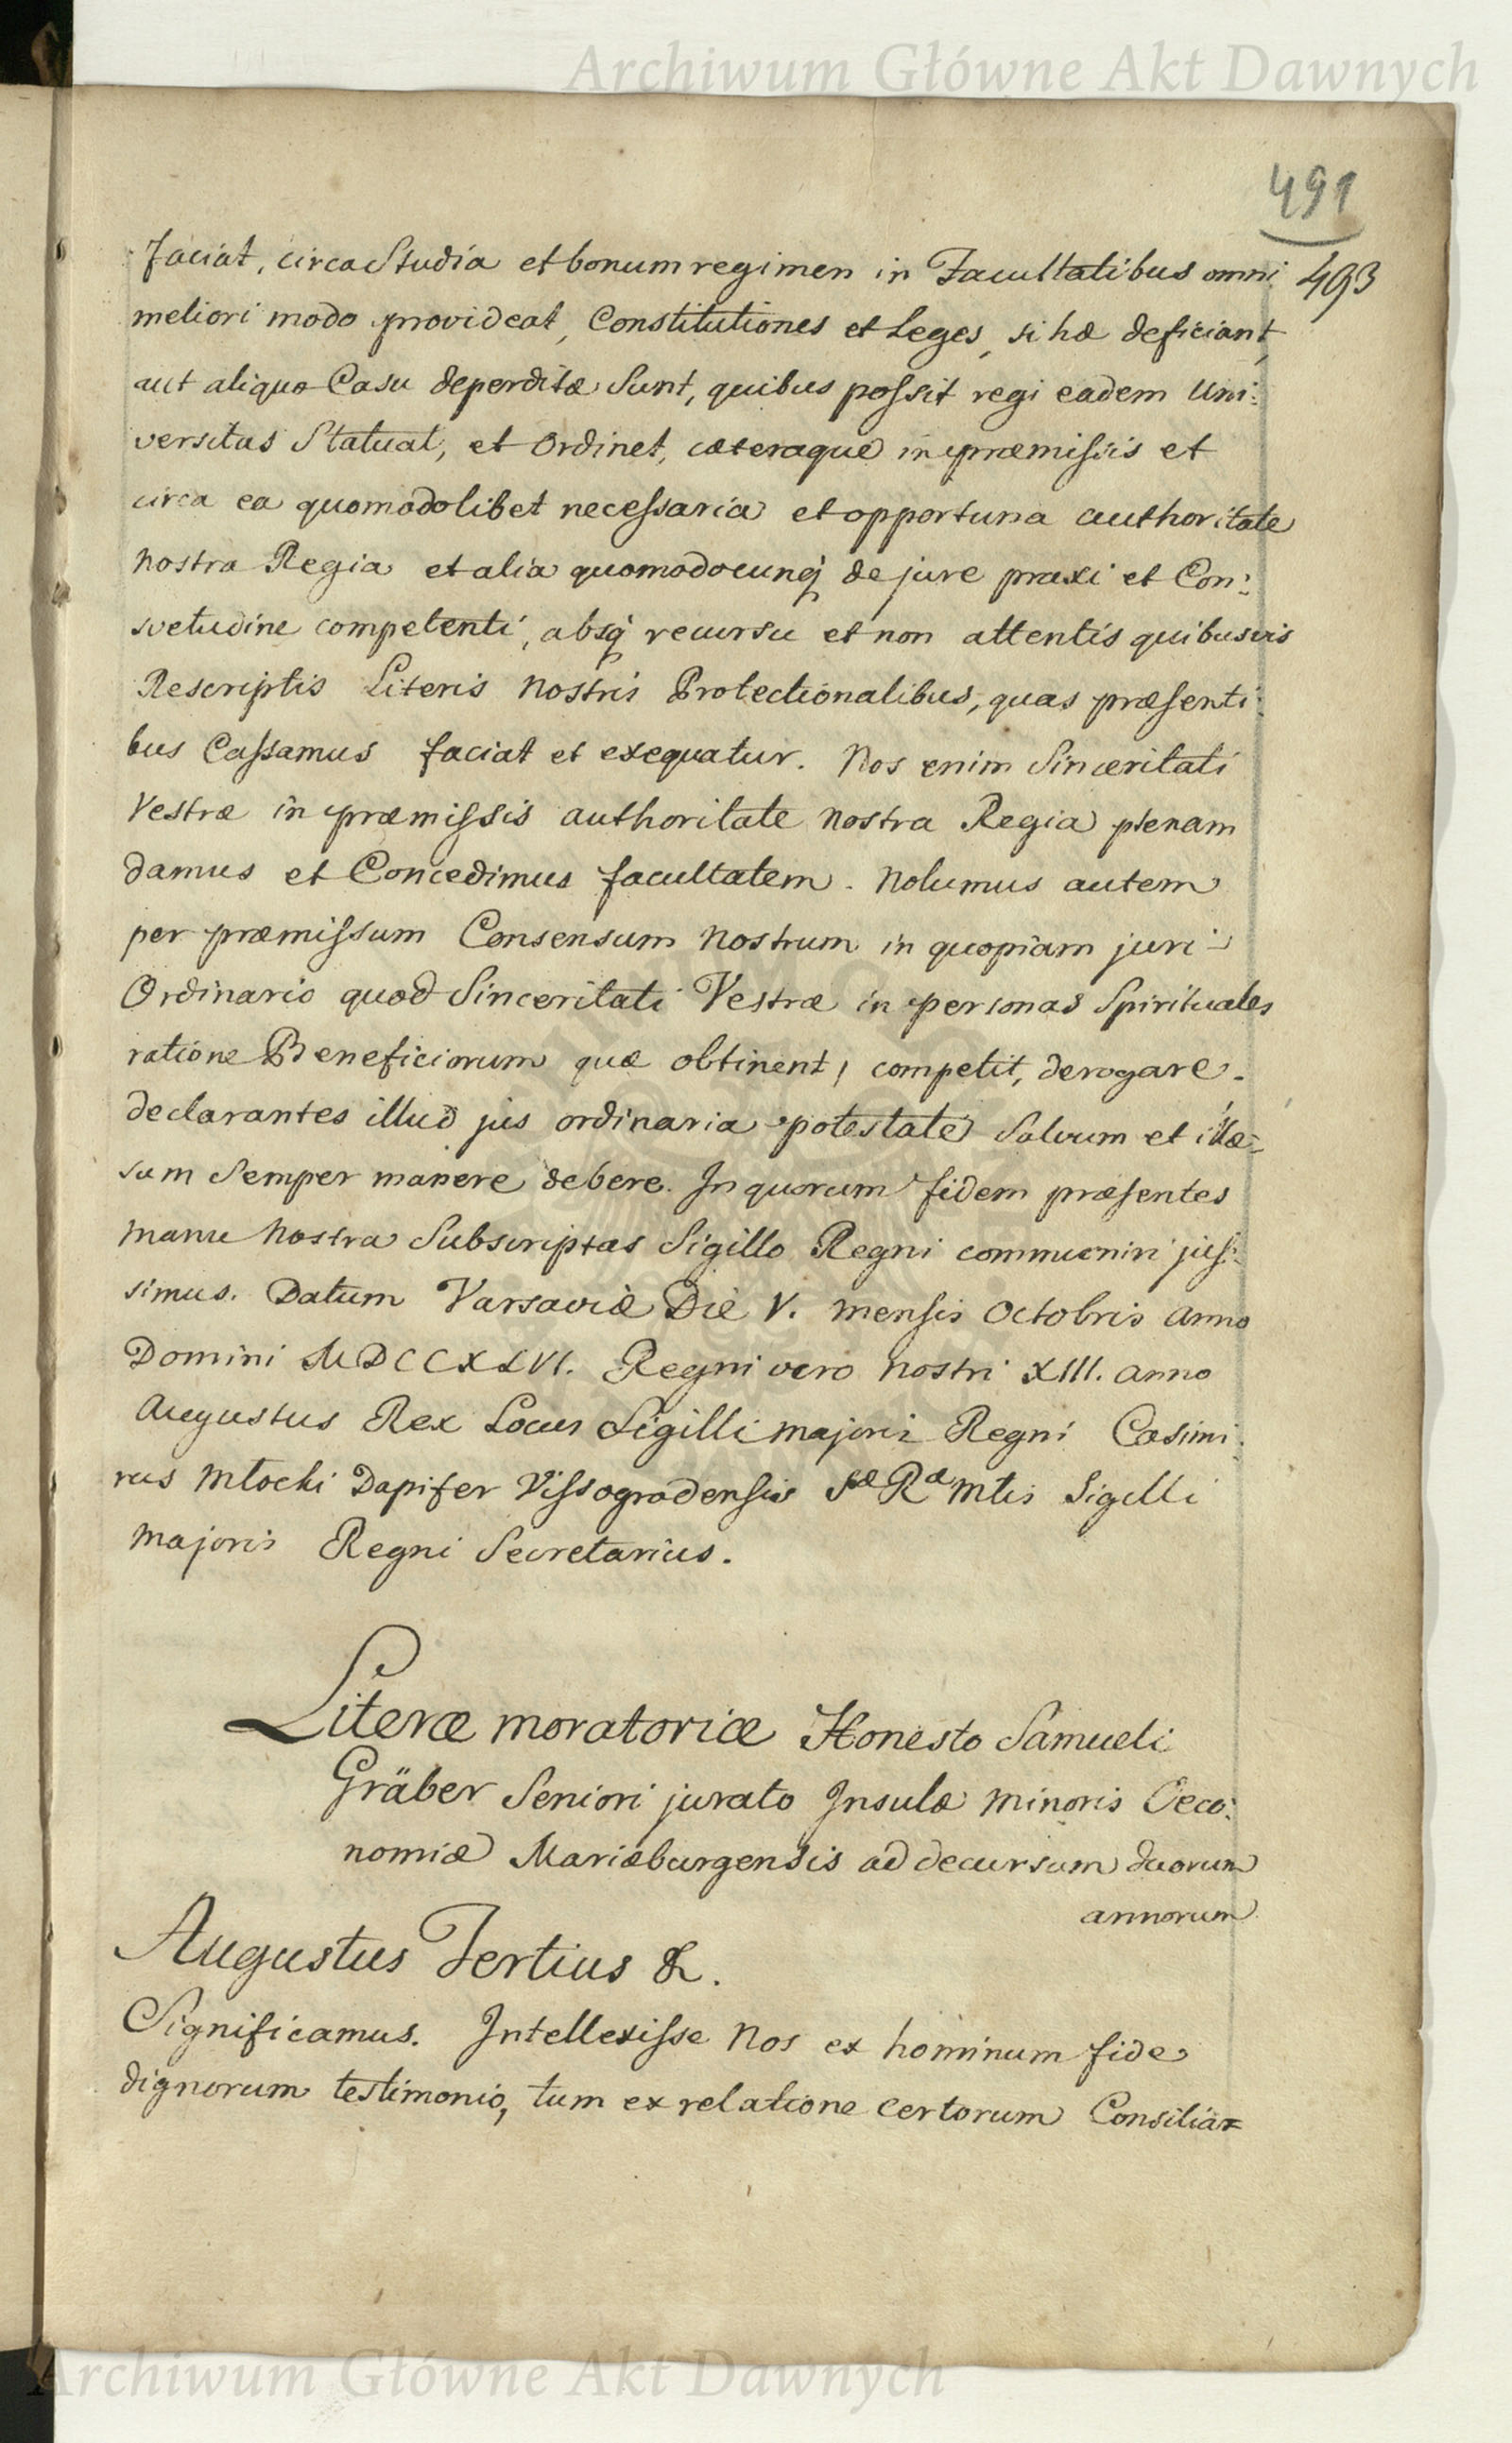 Archiwum Główne Akt Dawnych
491
493
faciat, circa Studia et bonum regimen in Facultatibus omni
meliori modo provideat, Constitutiones et Leges, si hæ deficiant,
aut aliquo Casu deperditæ Sunt, quibus possit regi eadem Uni:
versitas Statuat, et Ordinet, cæteraque in præmissis et
circa ea quomodolibet necessaria et opportuna authoritate
nostra Regia et alia quomodocunq de jure praxi et Con:
svetudine competenti, absq recursu et non attentis quibusvis
Rescriptis Literis nostris Protectionalibus, quas præsenti:
bus Cassamus faciat et exequatur. Nos enim Sinceritati
Vestræ in præmissis authoritate nostra Regia plenam
damus et Concedimus facultatem. Nolumus autem
per præmissum Consensum nostrum in quopiam juri
Ordinario quod Sinceritati Vestræ in personas Spirituales
ratione Beneficiorum quæ obtinent, competit, derogare.
declarantes illud jus ordinaria potestate Salvum et illæ:
sum Semper manere debere. In quorum fidem præsentes
manu nostra Subscriptas Sigillo Regni communiri jus:
simus. Datum Varsaviæ Die V. mensis Octobris Anno
Domini MDCCXLVI. Regni vero nostri XIII. anno
Augustus Rex Locus Sigilli majoris Regni Casimi:
rus Mlocki Dapifer Vissogrodensis Sæ Ræ Mtis Sigilli
majoris Regni Secretarius.
Literæ moratoriæ Honesto Samueli
Gräber Seniori jurato Insulæ minoris Oeco:
nomiæ Mariæburgensis ad decursum duorum
annorum
Augustus Tertius &.
Significamus. Intellexisse Nos ex hominum fide
dignorum testimonio, tum ex relatione certorum Consiliar=
Archiwum Główne Akt Dawnych